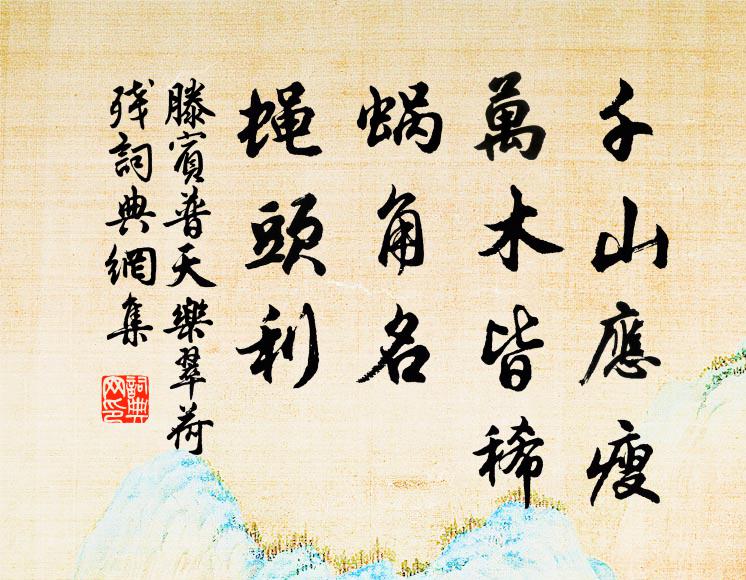 千山應瘦
萬木皆稀
蝸角名
蝇頭利
滕賓普天樂翠荷
残詞典網集
詞典网印